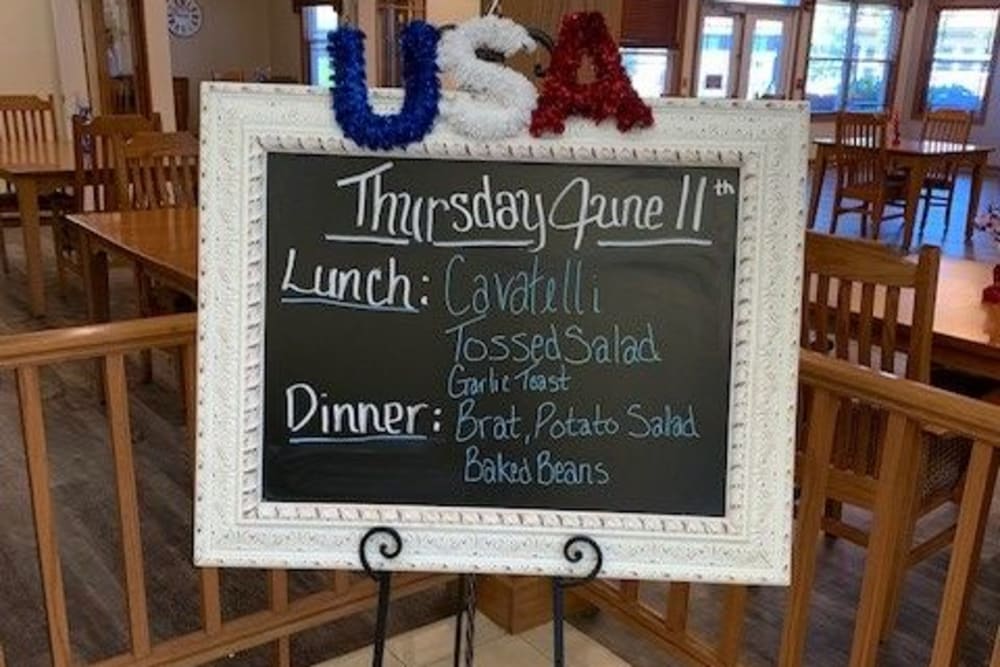 USA
Thursday June 11th
Lunch: Cavatelli
Tossed Salad
Garlic Toast
Dinner: Brat, Potato Salad
Baked Beans